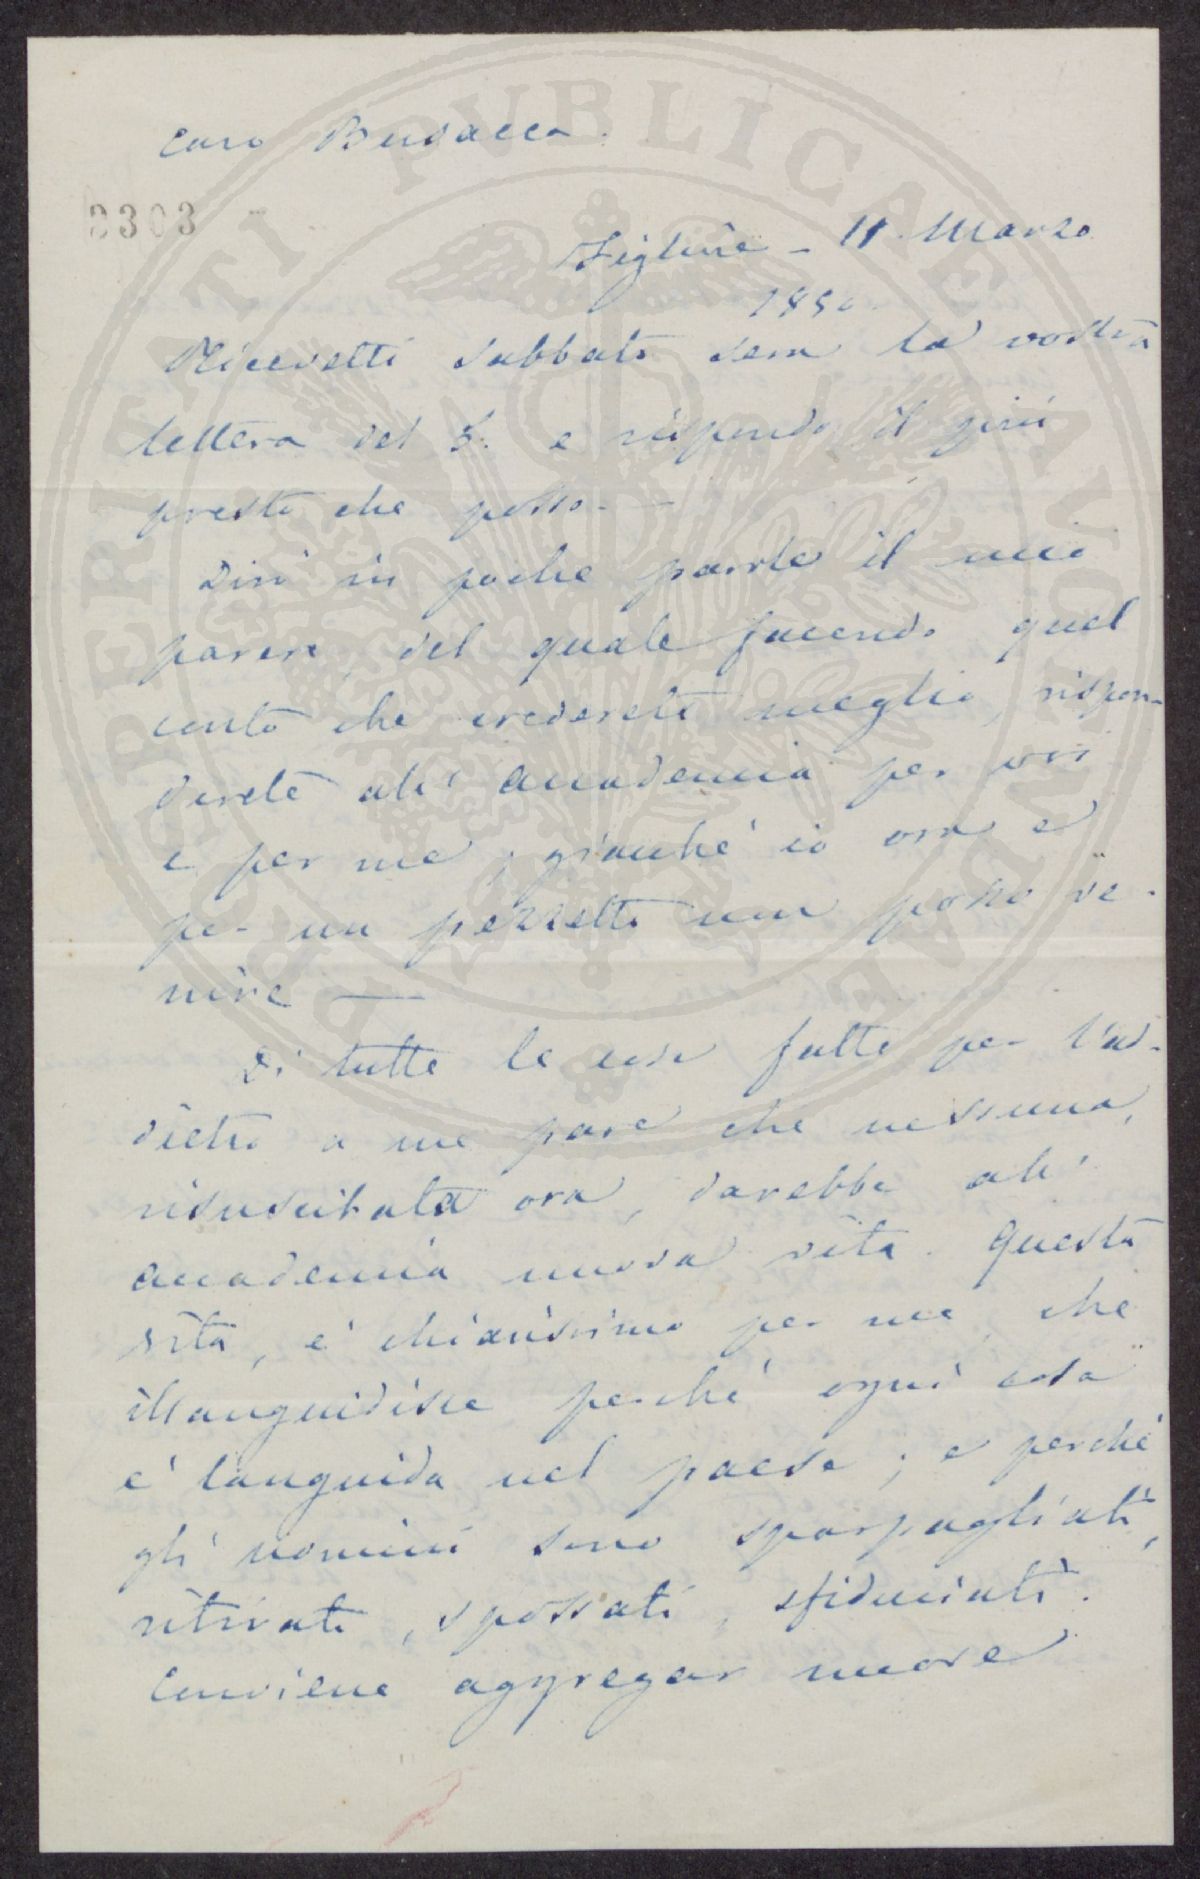 Caro Busacca.
0303
Figline - 11 Marzo
1850.
Ricevetti sabbato sera la vostra
lettera del 5. e rispondo il più
presto che posso. —
Dirò in poche parole il mio
parere, del quale facendo quel
conto che crederete meglio, rispon-
derete all' Accademia per voi
e per me; giacché io ora e
per un pezzetto non posso ve-
nire —
Di tutte le cose fatte per l'ad-
dietro a me pare che nessuna,
risuscitata ora, darebbe all'
Accademia nuova vita. Questa
vita, è chiarissimo per me, che
illanguidisce perché ogni cosa
è languida nel paese; e perché
gli uomini sono sparpagliati,
ritirati, spossati, sfiduciati.
Conviene aggregar nuove
PROSPERITATI PVBLICAE AVGENDAE